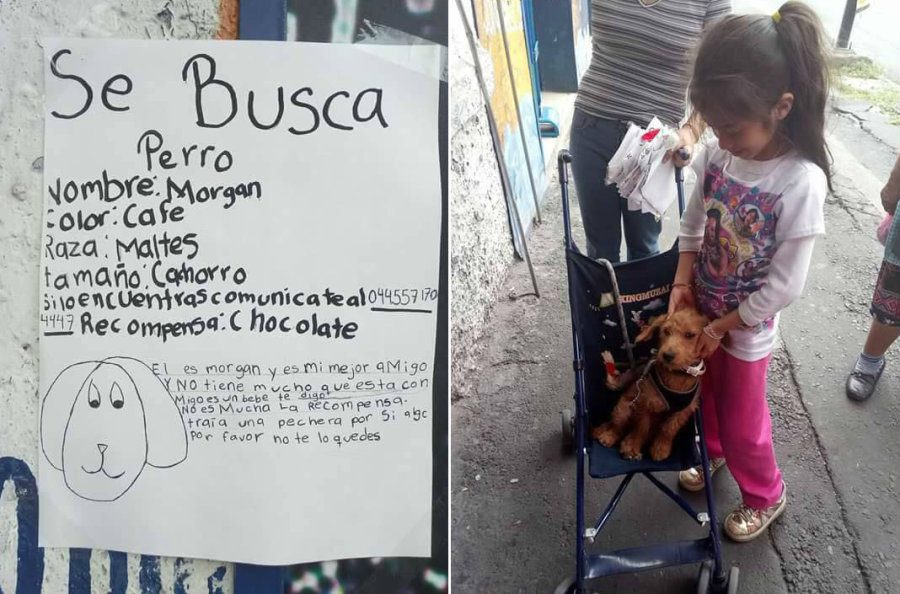 Se Busca
Perro
Nombre: Morgan
Color: Cafe
Raza: Maltes
tamaño: Cahorro
Si lo encuentras comunicate al 044557170
4447 Recompensa: Chocolate
El es morgan y es mi mejor aMigo
Y NO tiene mucho que esta con
Migo es un bebe te digo
NO es Mucha la RECOMPENSA.
traía una pechera por si algc
por favor no te lo quedes
KINGMUZAI